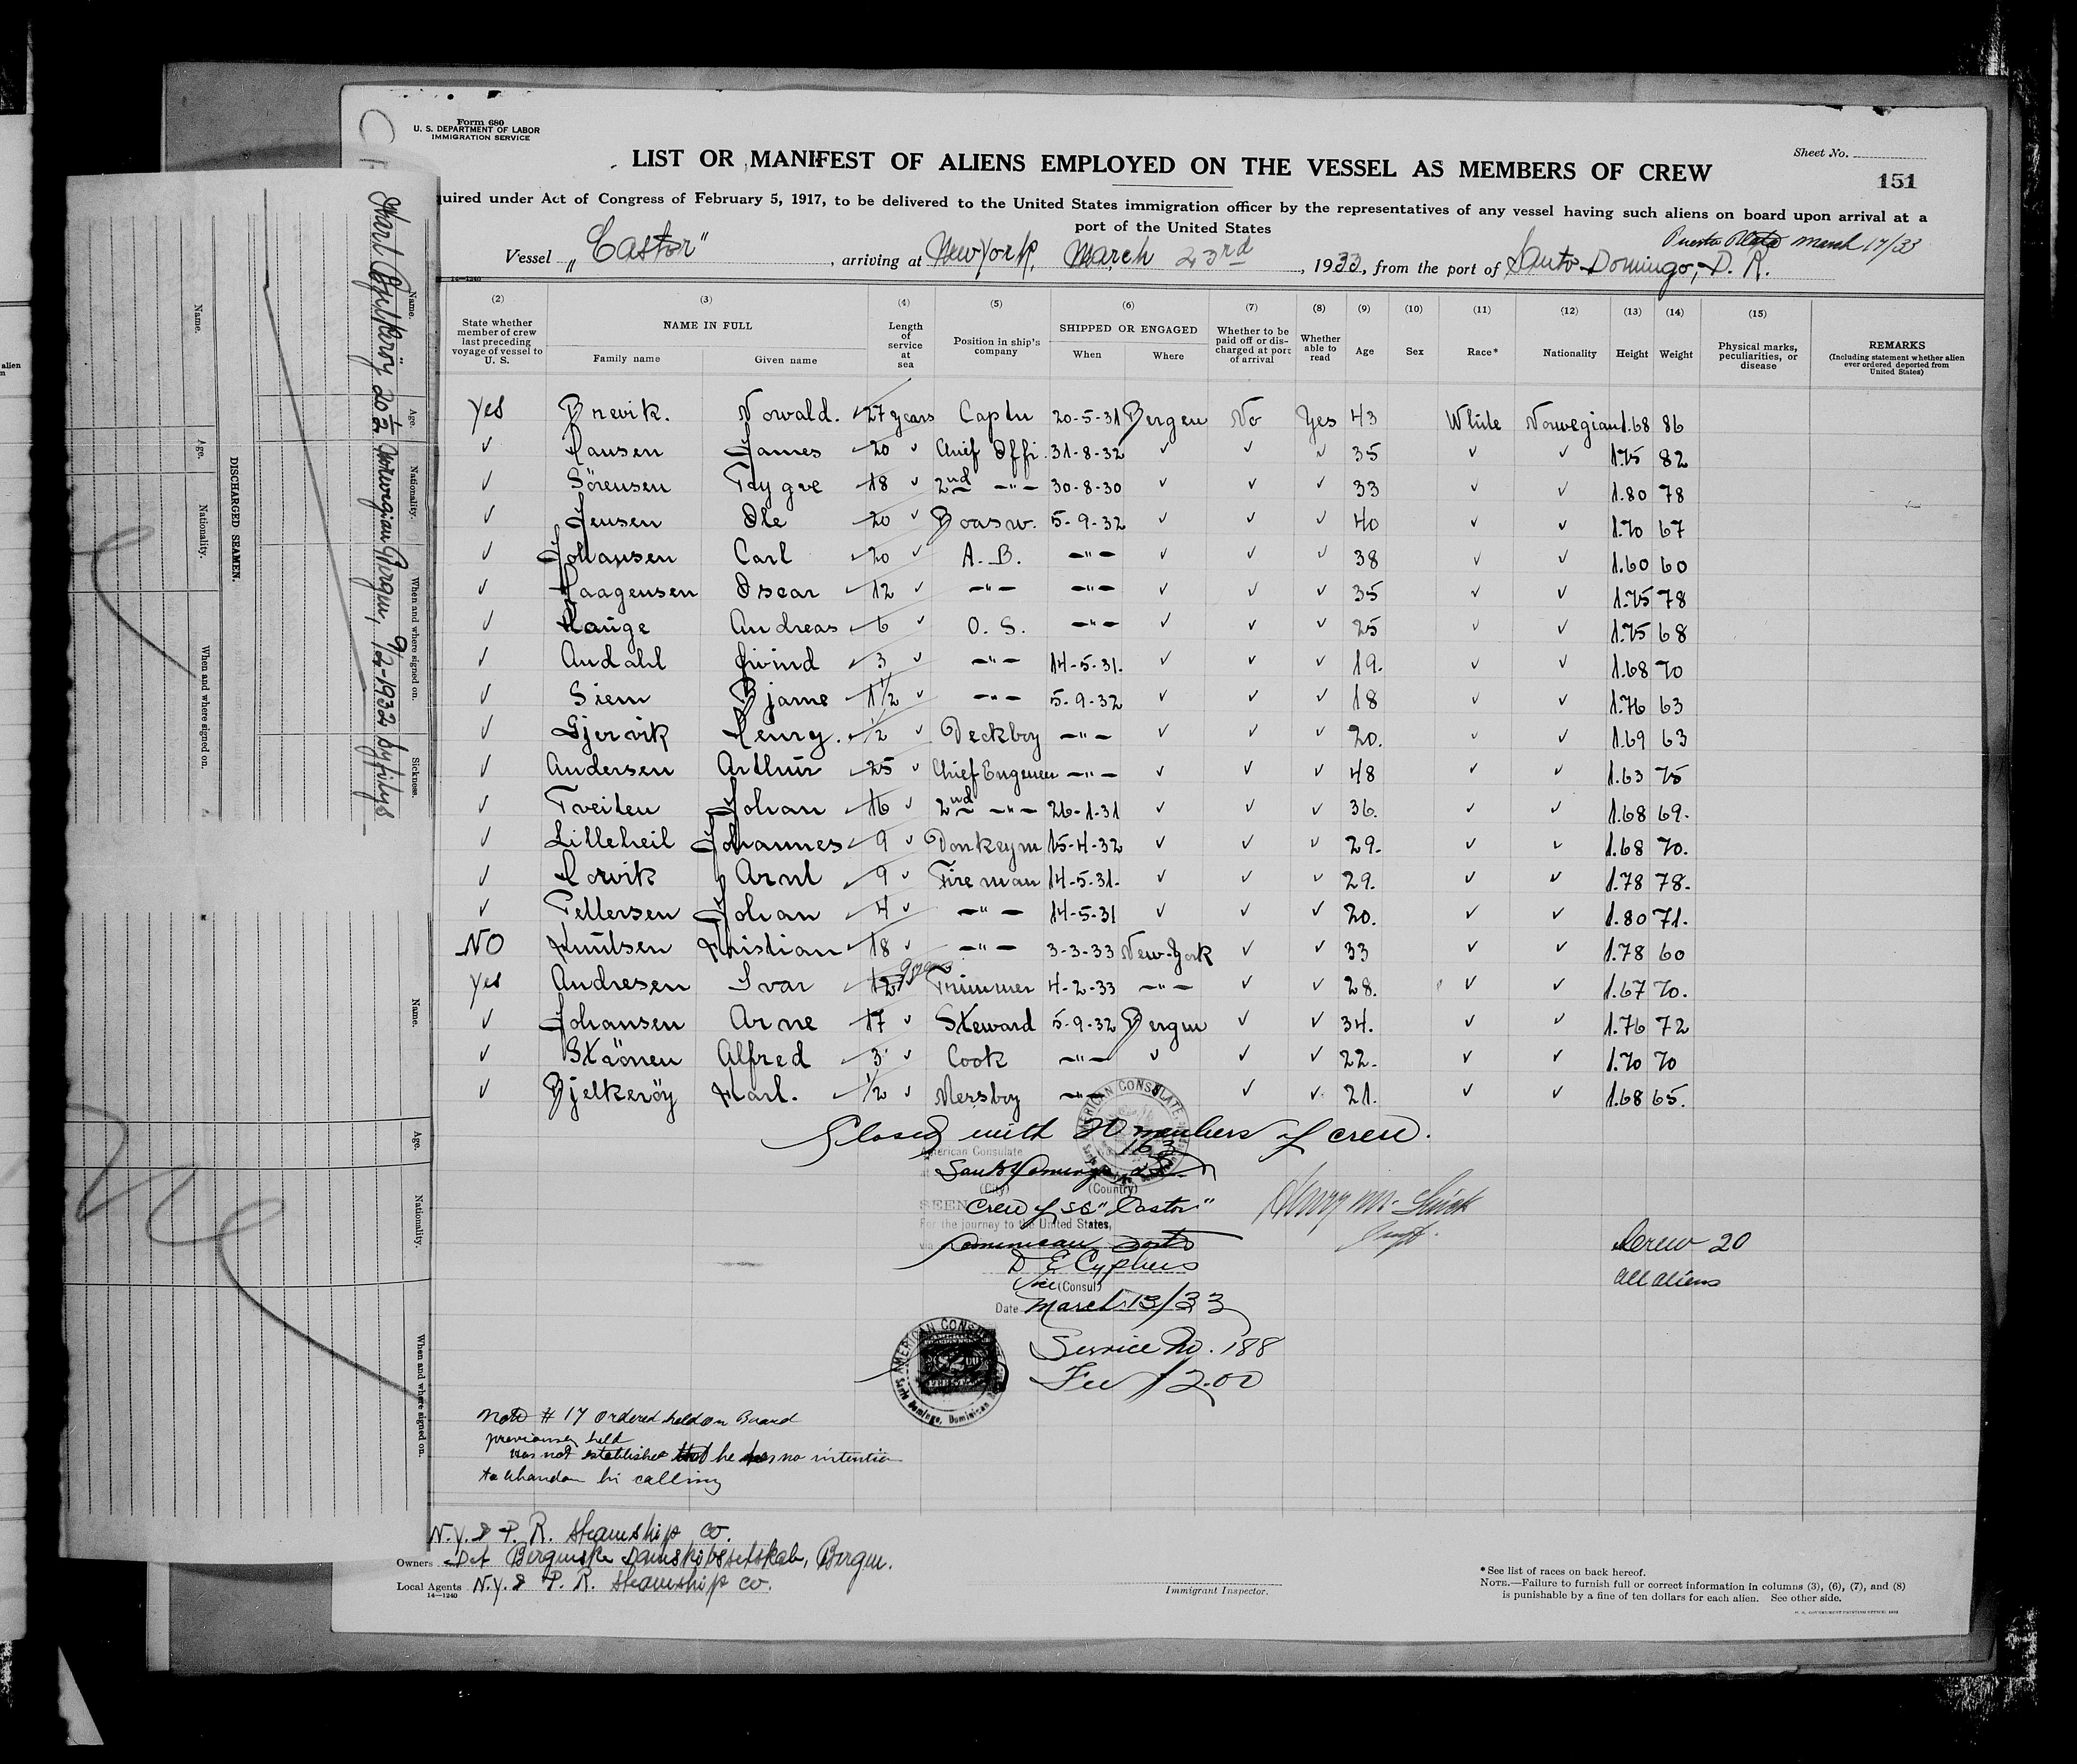 Form 680
U. S. DEPARTMENT OF LABOR
IMMIGRATION SERVICE
LIST OR MANIFEST OF ALIENS EMPLOYED ON THE VESSEL AS MEMBERS OF CREW
Sheet No.
151
uired under Act of Congress of February 5, 1917, to be delivered to the United States immigration officer by the representatives of any vessel having such aliens on board upon arrival at a
port of the United States
Puerto Plata March 17/33
Vessel „Castor", arriving at New York, March 23rd, 1933, from the port of Santo Domingo, D. R.
14—1240
(2) (3) (4) (5) (6) (7) (8) (9) (10) (11) (12) (13) (14) (15)
State whether member of crew last preceding voyage of vessel to U. S. NAME IN FULL Family name Given name Length of service at sea Position in ship's company SHIPPED OR ENGAGED When Where Whether to be paid off or discharged at port of arrival Whether able to read Age Sex Race* Nationality Height Weight Physical marks, peculiarities, or disease REMARKS (Including statement whether alien ever ordered deported from United States)
Yes Brevik. Norvald. 27 years Captn 20-5-31 Bergen No Yes 43 White Norwegian 1.68 86
✓ Hansen James 20 ✓ Chief Offi. 31-8-32 ✓ ✓ ✓ 35 ✓ ✓ 1.75 82
✓ Sörensen Trygve 18 ✓ 2nd —"— 30-8-30 ✓ ✓ ✓ 33 ✓ ✓ 1.80 78
✓ Jensen Ole 20 ✓ Boasw. 5-9-32 ✓ ✓ ✓ 40 ✓ ✓ 1.70 67
✓ Johansen Carl 20 ✓ A. B. —"— ✓ ✓ ✓ 38 ✓ ✓ 1.60 60
✓ Haagensen Oscar 12 ✓ —"— —"— ✓ ✓ ✓ 35 ✓ ✓ 1.75 78
✓ Hauge Andreas 6 ✓ O. S. —"— ✓ ✓ ✓ 25 ✓ ✓ 1.75 68
✓ Andahl Eivind 3 ✓ —"— 14-5-31. ✓ ✓ ✓ 19. ✓ ✓ 1.68 70
✓ Siem Bjarne 1 1/2 ✓ —"— 5-9-32 ✓ ✓ ✓ 18 ✓ ✓ 1.76 63
✓ Gjervik Henry. 1/2 ✓ Deckboy —"— ✓ ✓ ✓ 20. ✓ ✓ 1.69 63
✓ Andersen Arthur 25 ✓ Chief Engeneer —"— ✓ ✓ ✓ 48 ✓ ✓ 1.63 75
✓ Tveiten Johan 16 ✓ 2nd —"— 26-1-31 ✓ ✓ ✓ 36. ✓ ✓ 1.68 69.
✓ Lilleheil Johannes 9 ✓ Donkeym 15-4-32 ✓ ✓ ✓ 29. ✓ ✓ 1.68 70.
✓ Horvik Arnt 9 ✓ Fireman 14-5-31. ✓ ✓ ✓ 29. ✓ ✓ 1.78 78.
✓ Pettersen Johan 4 ✓ —"— 14-5-31 ✓ ✓ ✓ 20. ✓ ✓ 1.80 71.
NO Knutsen Kristian 18 ✓ —"— 3-3-33 New-York ✓ ✓ 33 ✓ ✓ 1.78 60
Yes Andresen Ivar 12 9 years Trimmer 4-2-33 —"— ✓ ✓ 28. ✓ ✓ 1.67 70.
✓ Johansen Arne 17 ✓ Steward 5-9-32 Bergen ✓ ✓ 34. ✓ ✓ 1.76 72
✓ Strönen Alfred 3 ✓ Cook —"— ✓ ✓ ✓ 22. ✓ ✓ 1.70 70
✓ Bjelkeröy Karl. 1/2 ✓ Messboy —"— ✓ ✓ 21. ✓ ✓ 1.68 65.
Closed with 20 members of crew.
163
American Consulate
Santo Domingo, D R
(City) (Country)
SEEN Crew of SS "Castor"
For the journey to the United States,
via Dominican Ports
D E Cyphers
Vice (Consul)
Date March 13/33
Service No. 188
Fee $2.00
AMERICAN CONSULATE
Santo Domingo, Dominican
Crew 20
all aliens
Note # 17 Ordered held on Board
previously held
was not established that he has no intention
to abandon his calling
N.Y. & P. R. Steamship Co.
Owners Det Bergenske Dampskibsselskab, Bergen.
Local Agents N.Y. & P. R. Steamship Co.
14—1240
Immigrant Inspector.
*See list of races on back hereof.
NOTE.—Failure to furnish full or correct information in columns (3), (6), (7), and (8)
is punishable by a fine of ten dollars for each alien. See other side.
DISCHARGED SEAMEN.
Name. Age. Nationality. When and where signed on. Sickness.
Karl Bjelkeröy 20 1/2 Norwegian Bergen, 9/2-1932
Name. Age. Nationality. When and where signed on.
Name. Age. Nationality. When and where signed on.